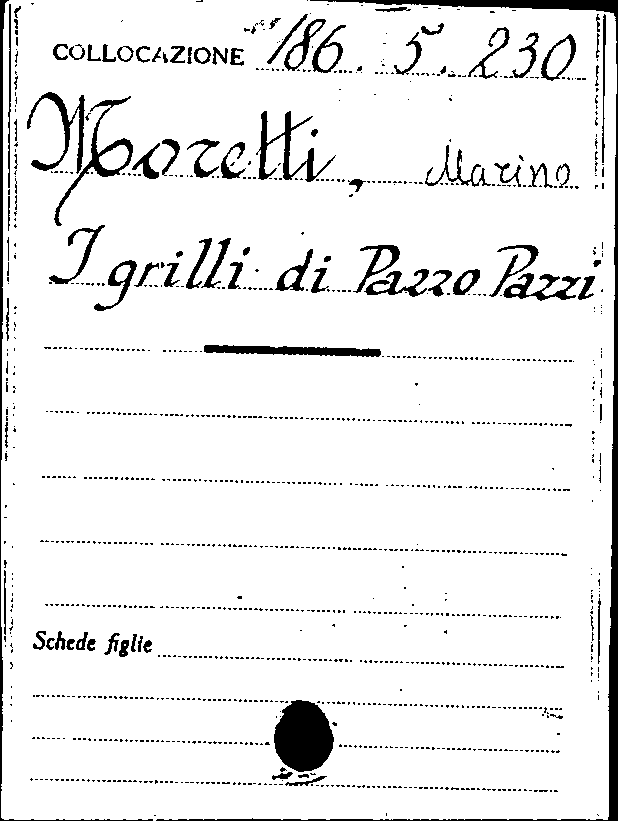 COLLOCAZIONE 186. 5. 230
Moretti, Marino
I grilli di Pazzo Pazzi
Schede figlie